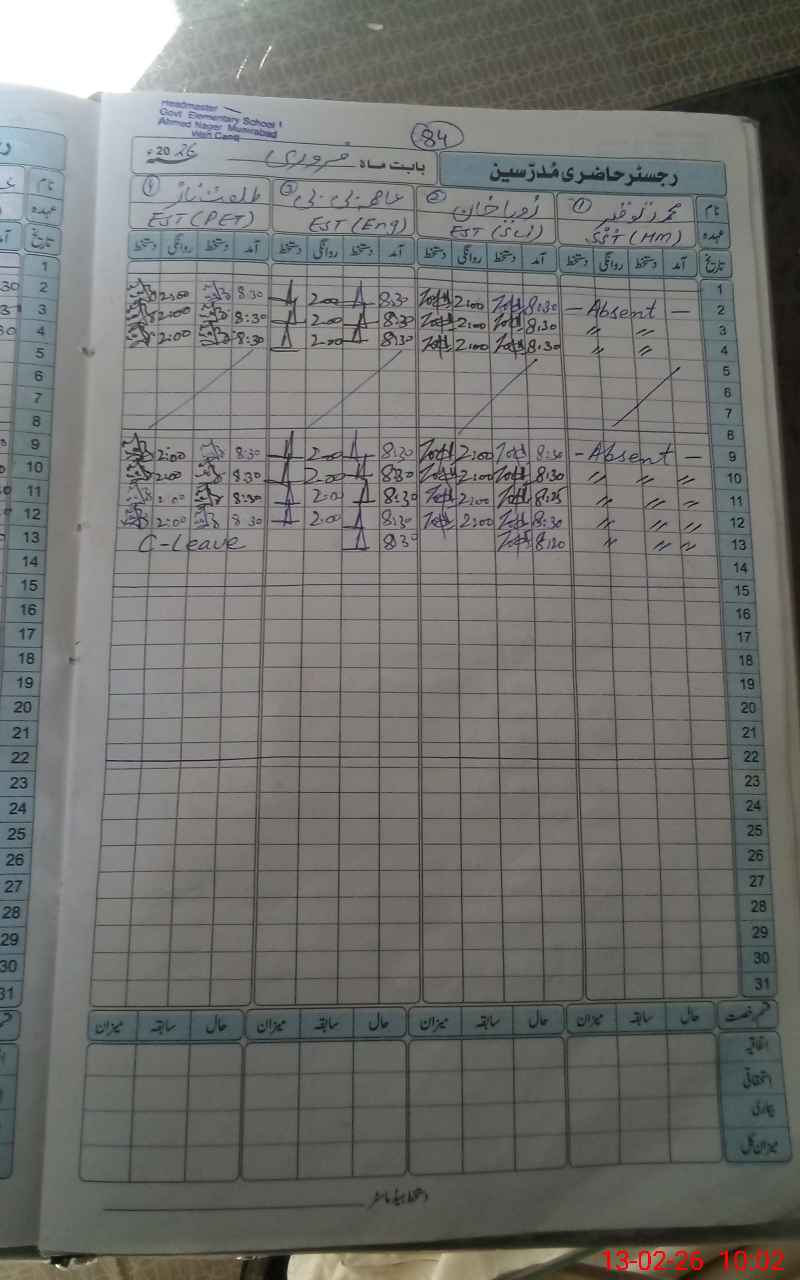 Headmaster
Govt Elementary School
Ahmed Nager Munirabad
Wah Cantt
84
رجسٹر حاضری مُدرّسین
بابت ماہ فروری 2026ء
نام ① محمد توقیر ② زوبیا خان ③ ④ طلعت نیاز
عہدہ SST (HM) EST (Eng) EST (PET)
تاریخ آمد دستخط روانگی دستخط آمد دستخط روانگی دستخط آمد دستخط روانگی دستخط آمد دستخط روانگی دستخط
1
2 - Absent - 8:30 2:00 8:30 2:00 8:30 2:00
3 〃 〃 8:30 2:00 8:30 2:00 8:30 2:00
4 〃 〃 8:30 2:00 8:30 2:00 8:30 2:00
5
6
7
8
9 - Absent - 8:30 2:00 8:30 2:00 8:30 2:00
10 〃 〃 〃 8:30 2:00 8:30 2:00 8:30 2:00
11 〃 〃 〃 8:25 2:00 8:30 2:00 8:30 2:00
12 〃 〃 〃 8:30 2:00 8:30 2:00 8:30 2:00
13 〃 〃 〃 8:20 8:30 C-Leave
14
15
16
17
18
19
20
21
22
23
24
25
26
27
28
29
30
31
قسم رخصت حال سابقہ میزان حال سابقہ میزان حال سابقہ میزان حال سابقہ میزان
اتفاقیہ
استحقاقی
بیماری
میزان کل
دستخط ہیڈ ماسٹر
13-02-26 10:02